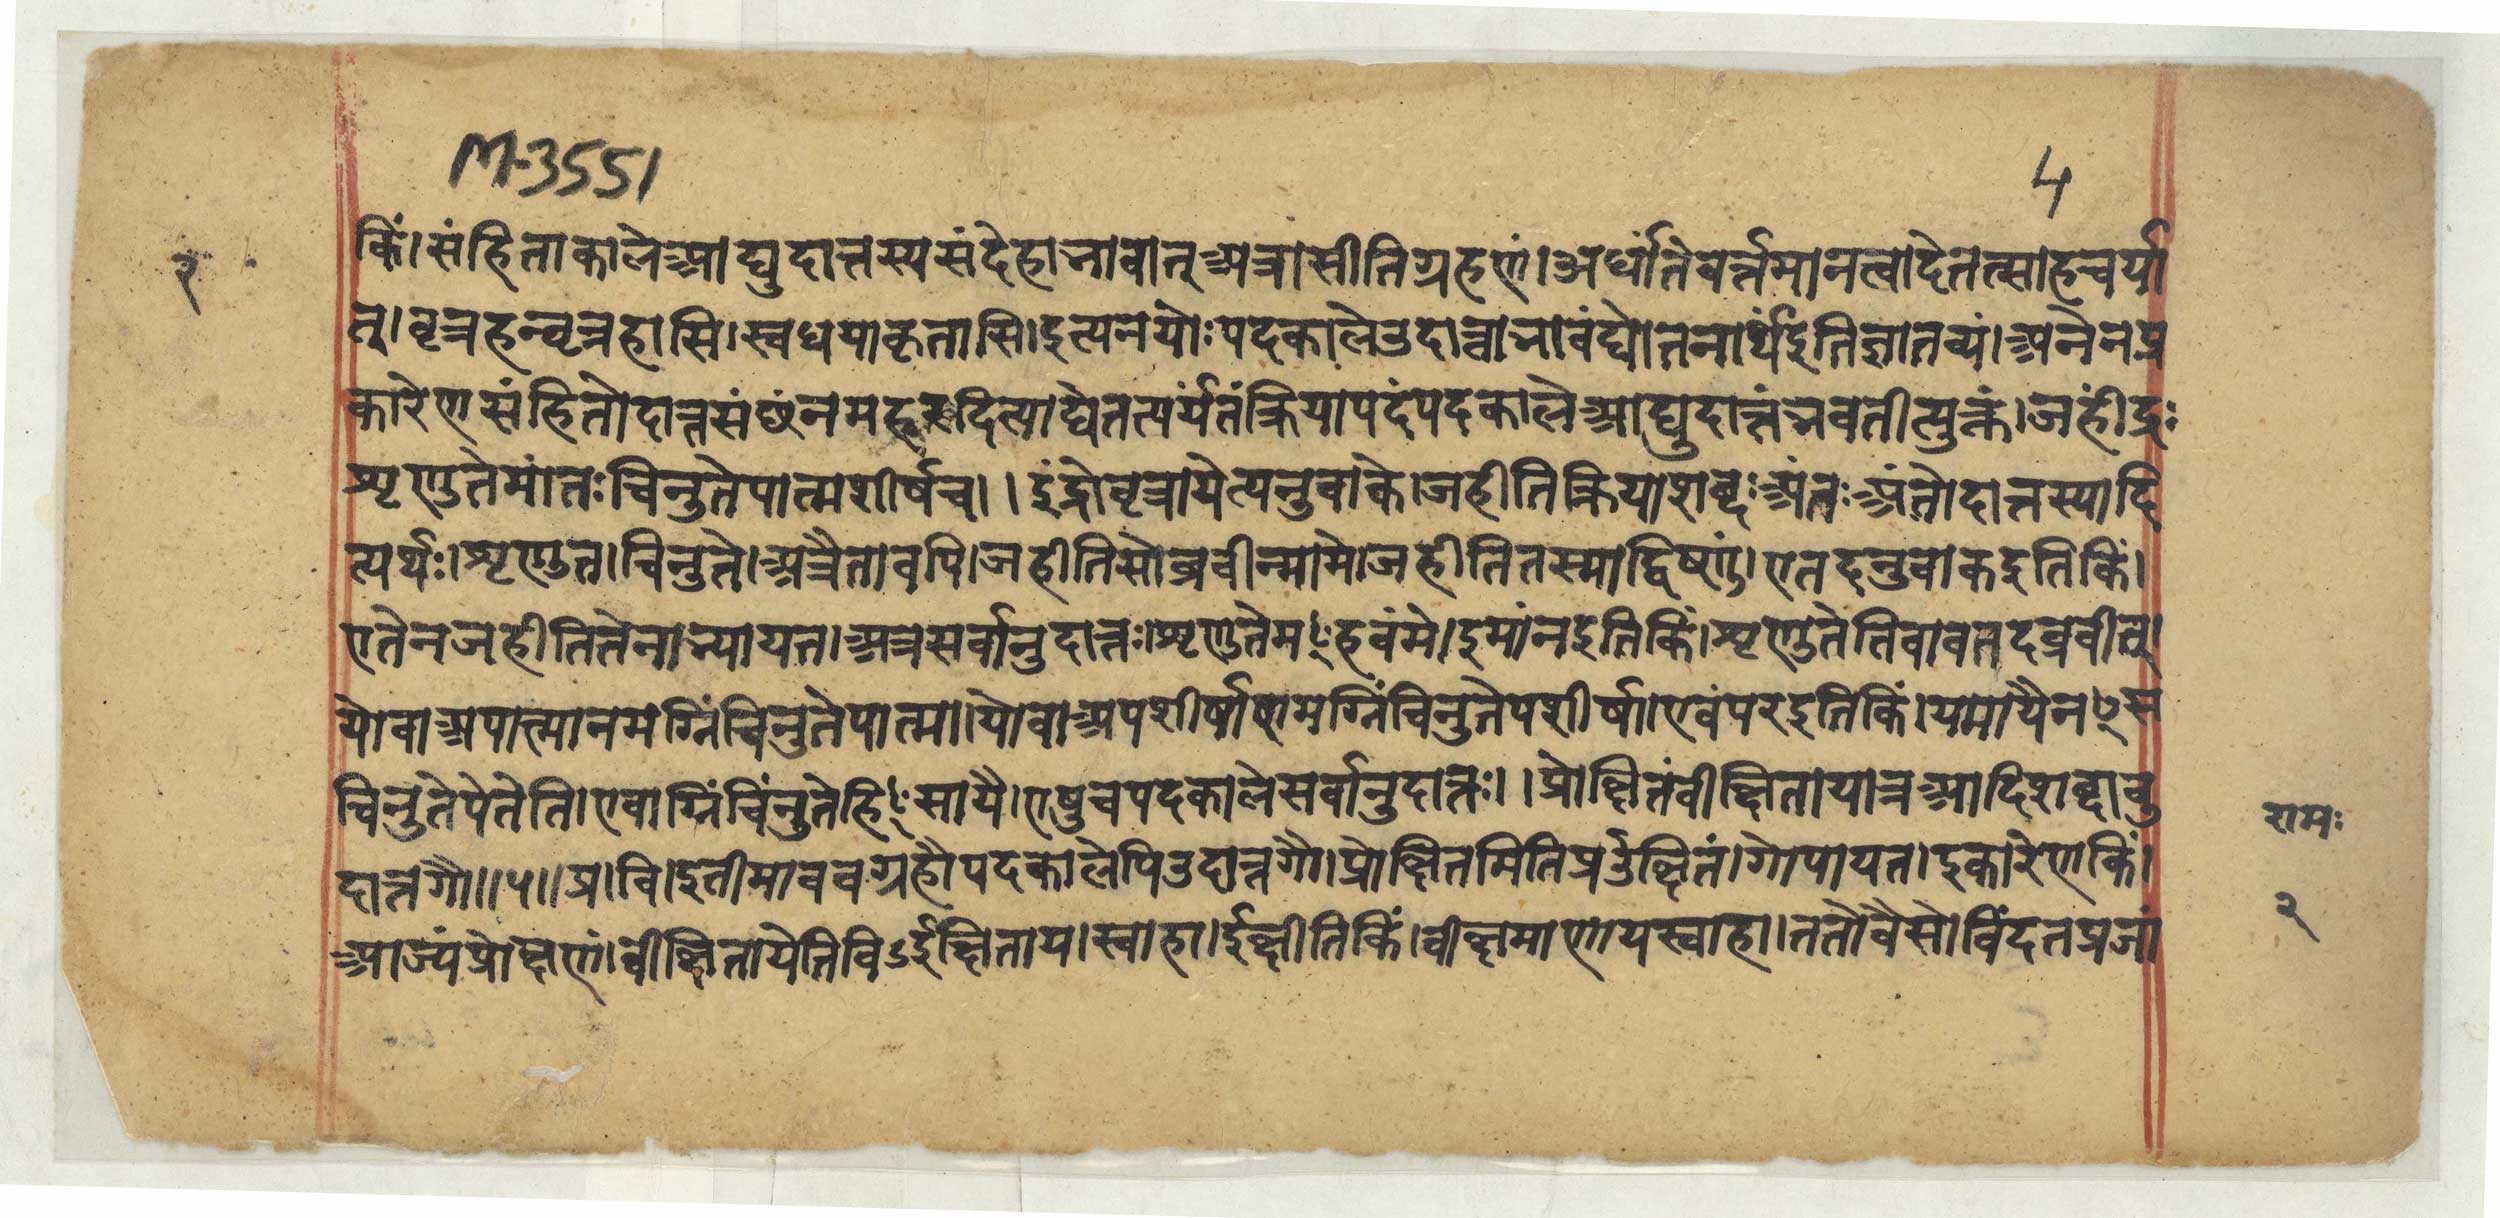 M-3551
4
२
किं।संहिताकालेआद्युदात्तस्यसंदेहाभावात्अत्रासीतिग्रहणं।अर्थांतेवर्त्तमानत्वादेतत्साहचर्या
त्।वृत्रहन्वृत्रहासि।स्वधयाकृतासि।इत्यनयोःपदकालेउदात्ताभावंद्योतनार्थंइतिज्ञातव्यं।अनेनप्र
कारेणसंहितोदात्तसंज्ञंनमह्रदित्याद्येतत्पर्यंतंक्रियापदंपदकालेआद्युदात्तंभवतीत्युक्तं।जहींद्रः
शृणुतेमांतःचिनुतेपात्मशीर्षच।।इंद्रोवृत्रायेत्यनुवाके।जहीतिक्रियाशब्दःअंतःअंतोदात्तस्यादि
त्यर्थः।शृणुत।चिनुते।अत्रैतावपि।जहीतिसोब्रवीन्मामे।जहीतितस्माद्विष्णु।एतदनुवाकइतिकिं।
एतेनजहीतितेनाभ्यायत।अत्रसर्वानुदात्तः।शृणुतेमꣳहवंमे।इमांनइतिकिं।शृणुतेतिवावतदब्रवीत्।
योवाअपात्मानमग्निंचिनुतेपात्मा।योवाअपशीर्षाणमग्निंचिनुतेपशीर्षा।एवंपरइतिकिं।यमायैनꣳस
चिनुतेपेतेति।एवाग्निंचिंनुतेहिꣳसायै।एषुचपदकालेसर्वानुदात्तः।।प्रोक्षितंवीक्षितायात्रआदिशब्दावु
दात्तगौ॥५॥प्र।वि।इतीमाववग्रहौपदकालेपिउदात्तगौ।प्रोक्षितमितिप्रऽउक्षितं।गोपायत।इकारेणकिं।
आज्यंप्रोक्षणं।वीक्षितायेतिविऽईक्षिताय।स्वाहा।ईक्षीतिकिं।वीक्ष्यमाणायस्वाहा।ततोवैसोविंदतप्रजां
रामः
२